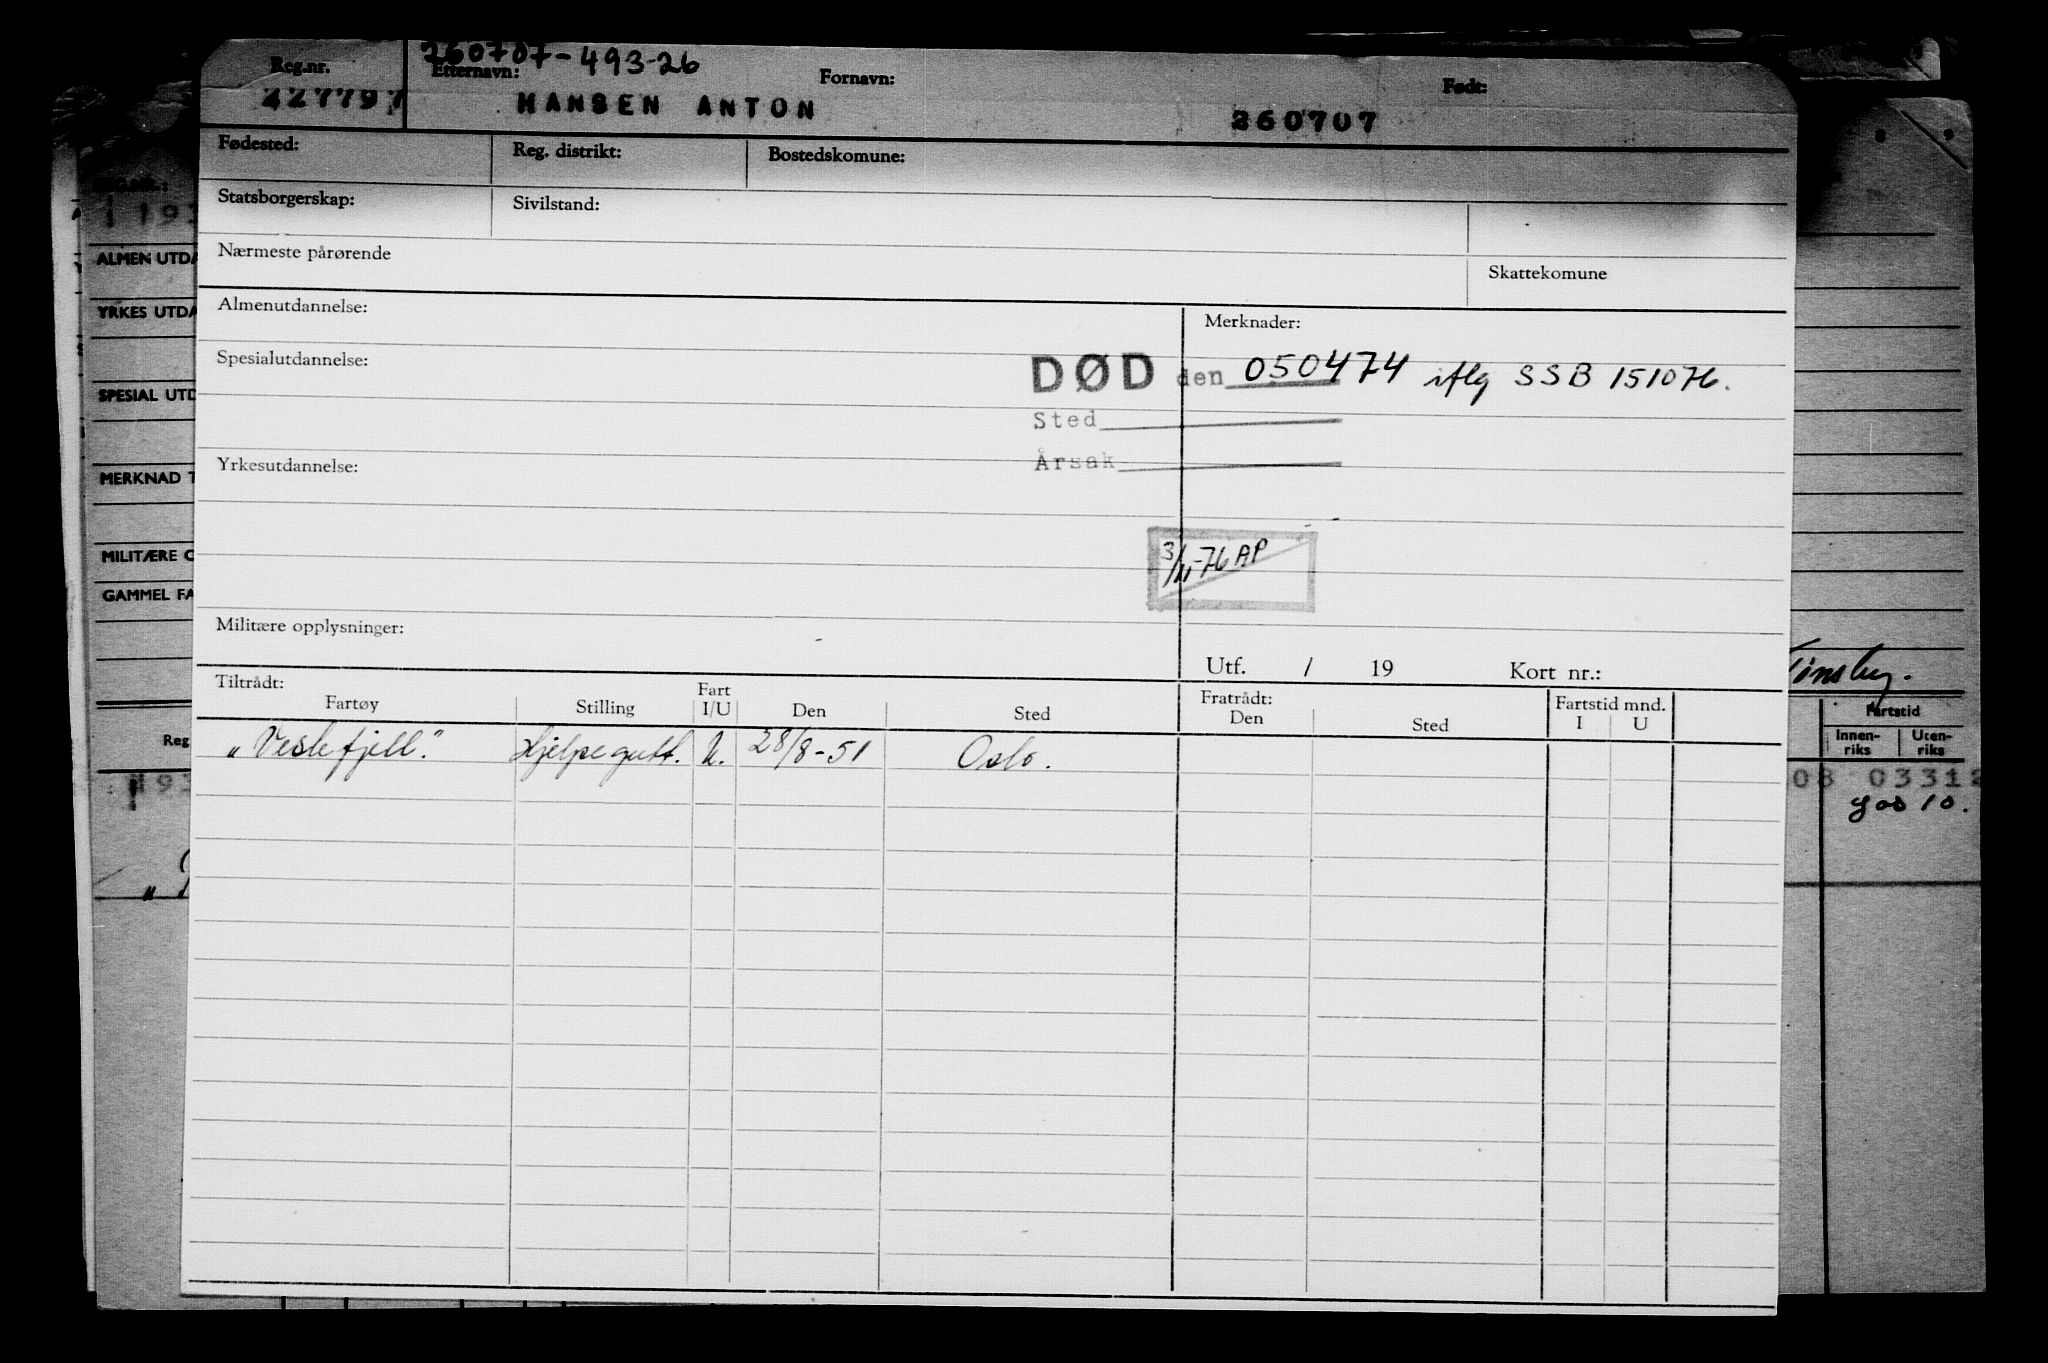 260707-493-26
Reg.nr. Etternavn: Fornavn: Født:
227797 HANSEN ANTON 260707
Fødested: Reg. distrikt: Bostedskomune:
Statsborgerskap: Sivilstand:
Nærmeste pårørende Skattekomune
Almenutdannelse: Merknader:
Spesialutdannelse: DØD den 050474 iflg SSB 151076.
Sted
Yrkesutdannelse: Årsak
3/11-76 AP
Militære opplysninger:
Utf. / 19 Kort nr.:
Tiltrådt: Fart Fratrådt: Fartstid mnd.
Fartøy Stilling I/U Den Sted Den Sted I U
„Veslefjell." Hjelpegutt. U. 28/8-51 Oslo.
ALMEN UTDA
YRKES UTDA
SPESIAL UTD
MERKNAD T
MILITÆRE O
GAMMEL FA
Reg
8 9
Fartstid
Innen-
riks
Uten-
riks
08 03312
god 10.